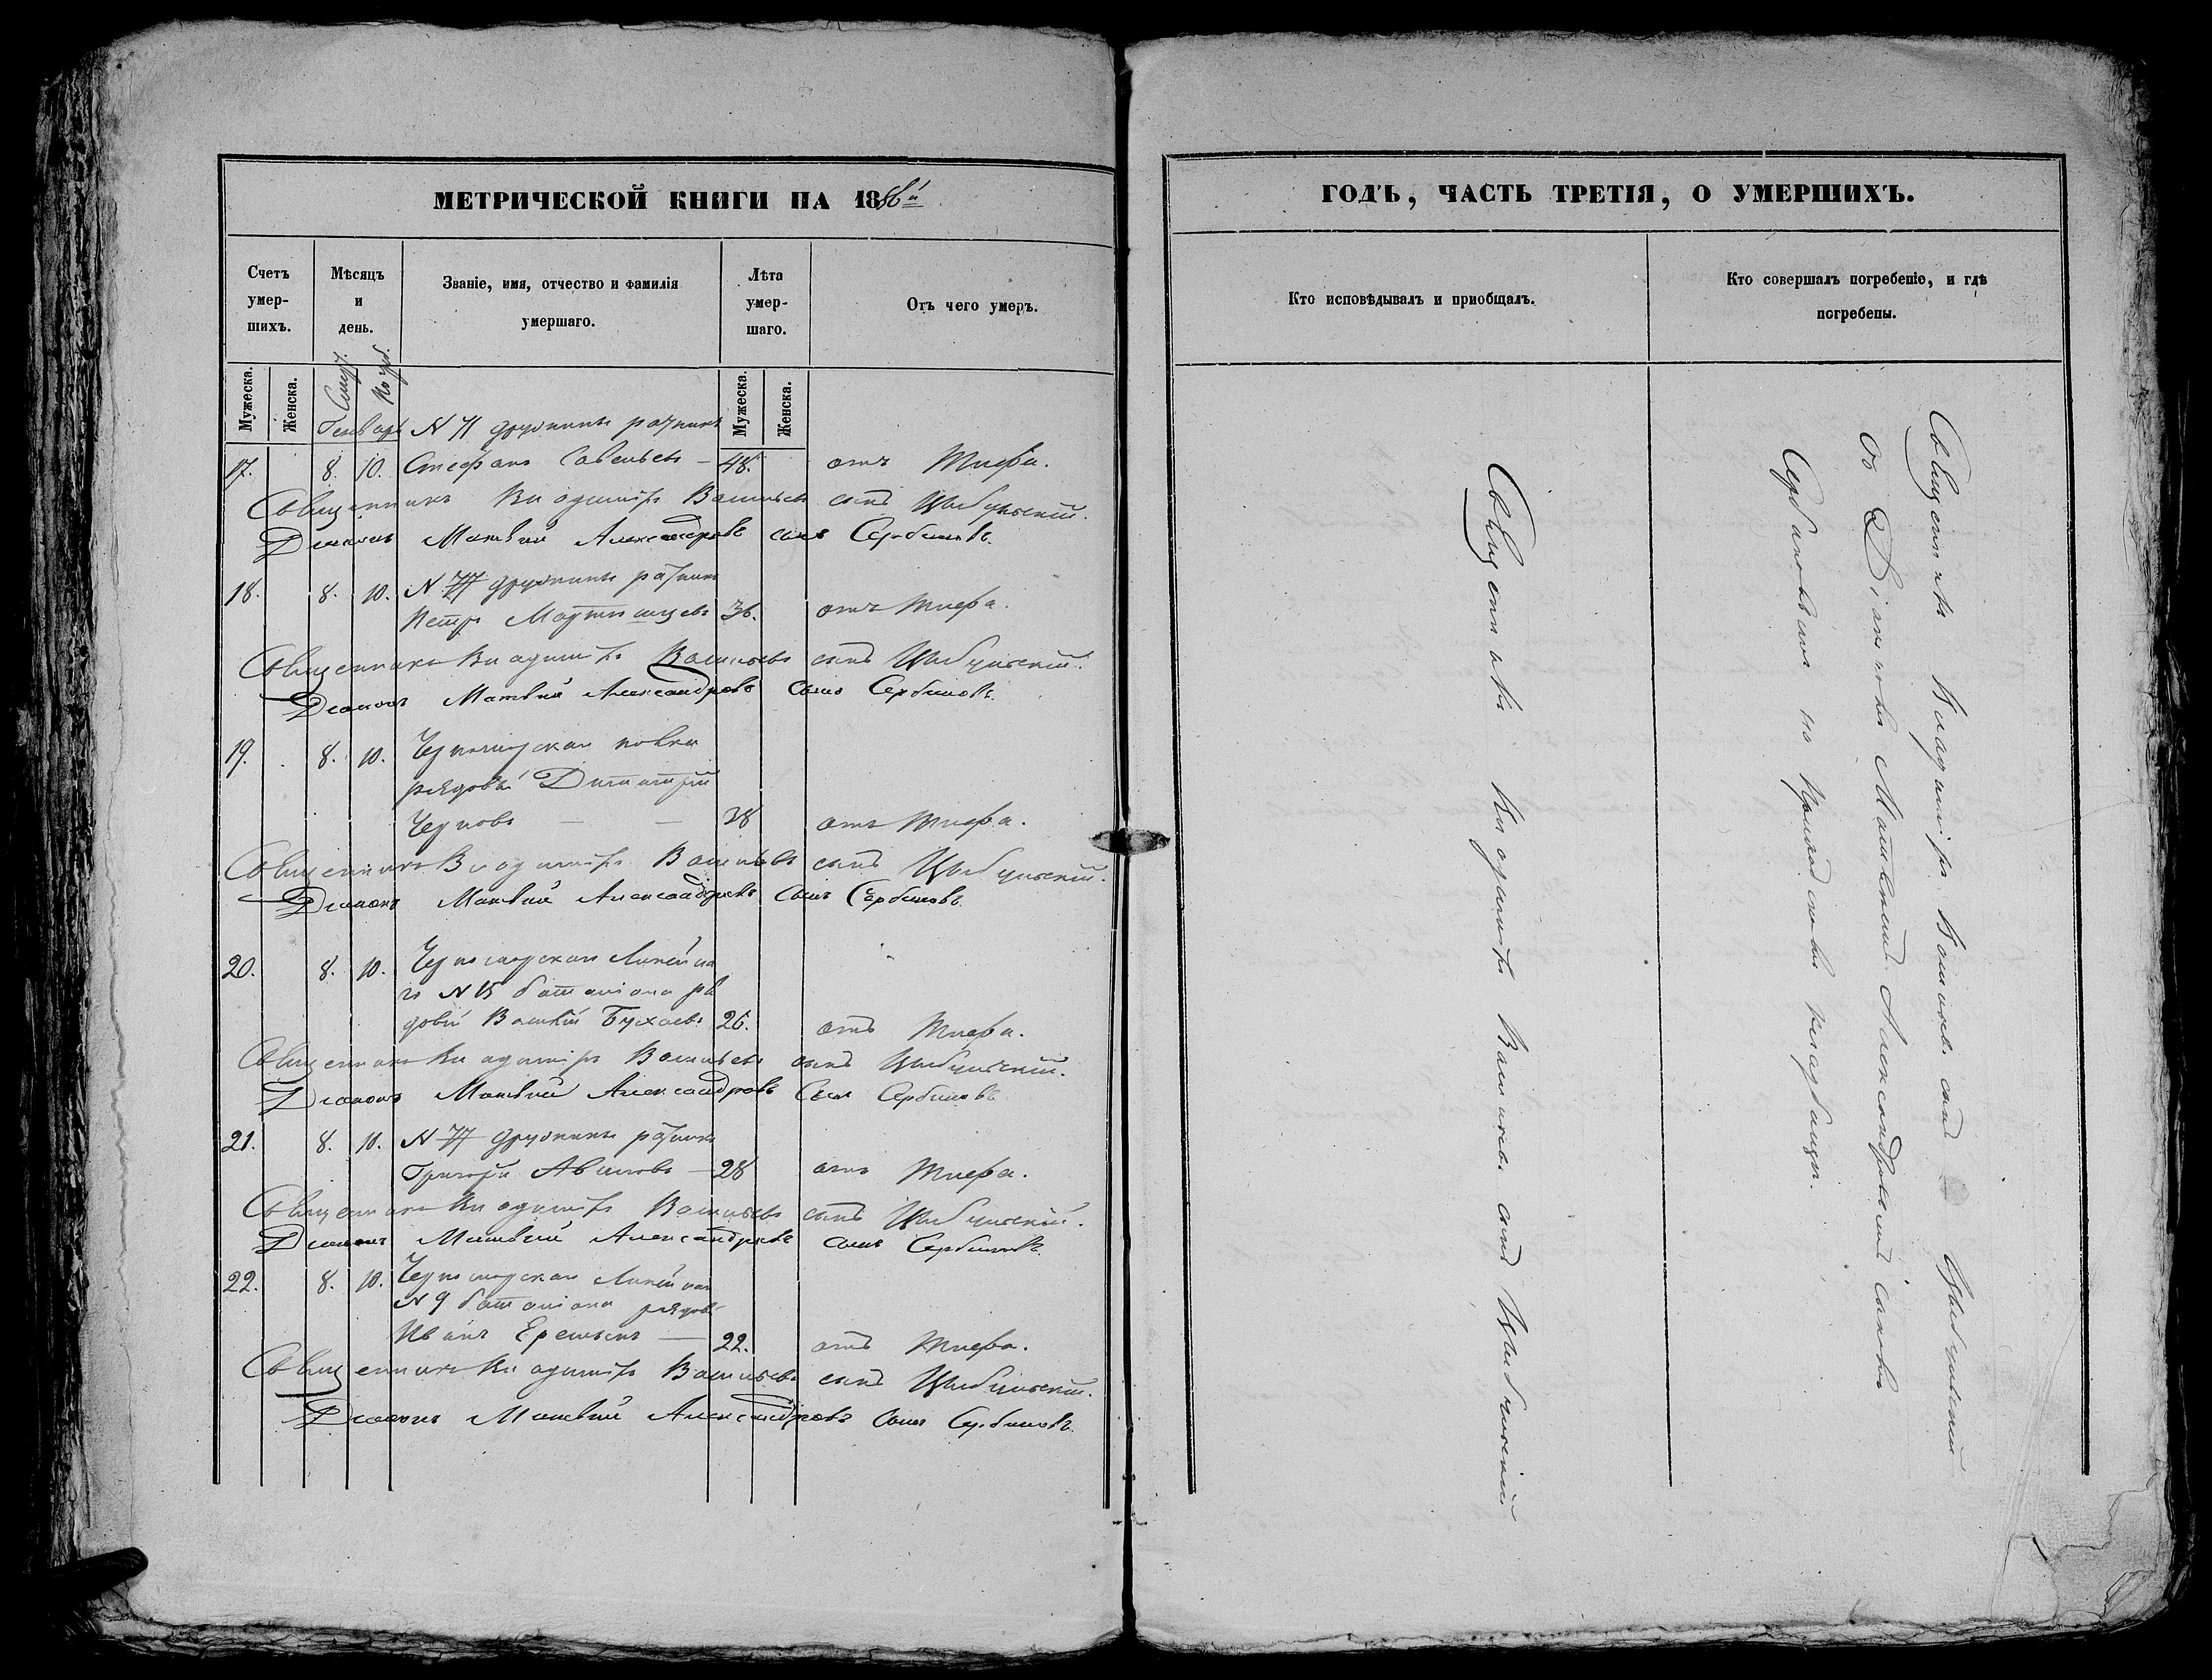 МЕТРИЧЕСКОЙ КНИГИ НА 1856й
Счетъ умер-шихъ.
Мѣсяцъ и день.
Званіе, имя, отчество и фамилія умершаго.
Лѣта умер-шаго.
Отъ чего умеръ.
Мужеска.
Женска.
Смер.
Погр.
Мужеска.
Женска.
Генварь N 71 дружины ратникъ
17. 8. 10. Стефанъ Савельевъ — 48. отъ тифа.
Священникъ Владиміръ Васильевъ сынъ Цыбульскій.
Діаконъ Матвѣй Александровъ сынъ Сербиновъ.
18. 8. 10. N 77 дружины ратникъ
Петръ 36. отъ тифа.
Священникъ Владиміръ Васильевъ сынъ Цыбульскій.
Діаконъ Матвѣй Александровъ сынъ Сербиновъ.
19. 8. 10. Черноморскаго полка
рядовый Димитрій
Черновъ — — 38 отъ тифа.
Священникъ Владиміръ Васильевъ сынъ Цыбульскій.
Діаконъ Матвѣй Александровъ сынъ Сербиновъ.
20. 8. 10. Черноморскаго Линейна
го N 15 баталіона ря
довый Василій Бухаевъ 26. отъ тифа.
Священникъ Владиміръ Васильевъ сынъ Цыбульскій.
Діаконъ Матвѣй Александровъ сынъ Сербиновъ.
21. 8. 10. N 77 дружины ратникъ
Григорій Авиловъ — 28 отъ тифа.
Священникъ Владиміръ Васильевъ сынъ Цыбульскій.
Діаконъ Матвѣй Александровъ сынъ Сербиновъ.
22. 8. 10. Черноморскаго Линейнаго
N 9 баталіона рядовый
Иванъ — 22. отъ тифа.
Священникъ Владиміръ Васильевъ сынъ Цыбульскій.
Діаконъ Матвѣй Александровъ сынъ Сербиновъ.
ГОДЪ, ЧАСТЬ ТРЕТІЯ, О УМЕРШИХЪ.
Кто исповѣдывалъ и пріобщалъ.
Кто совершалъ погребеніе, и гдѣ погребены.
Священникъ Владиміръ Васильевъ сынъ Цыбульскій
Священникъ Владиміръ Васильевъ сынъ Цыбульскій
съ Діакономъ Матвѣемъ Александровымъ сыномъ
Сербиновымъ на Приходскомъ кладбищѣ.